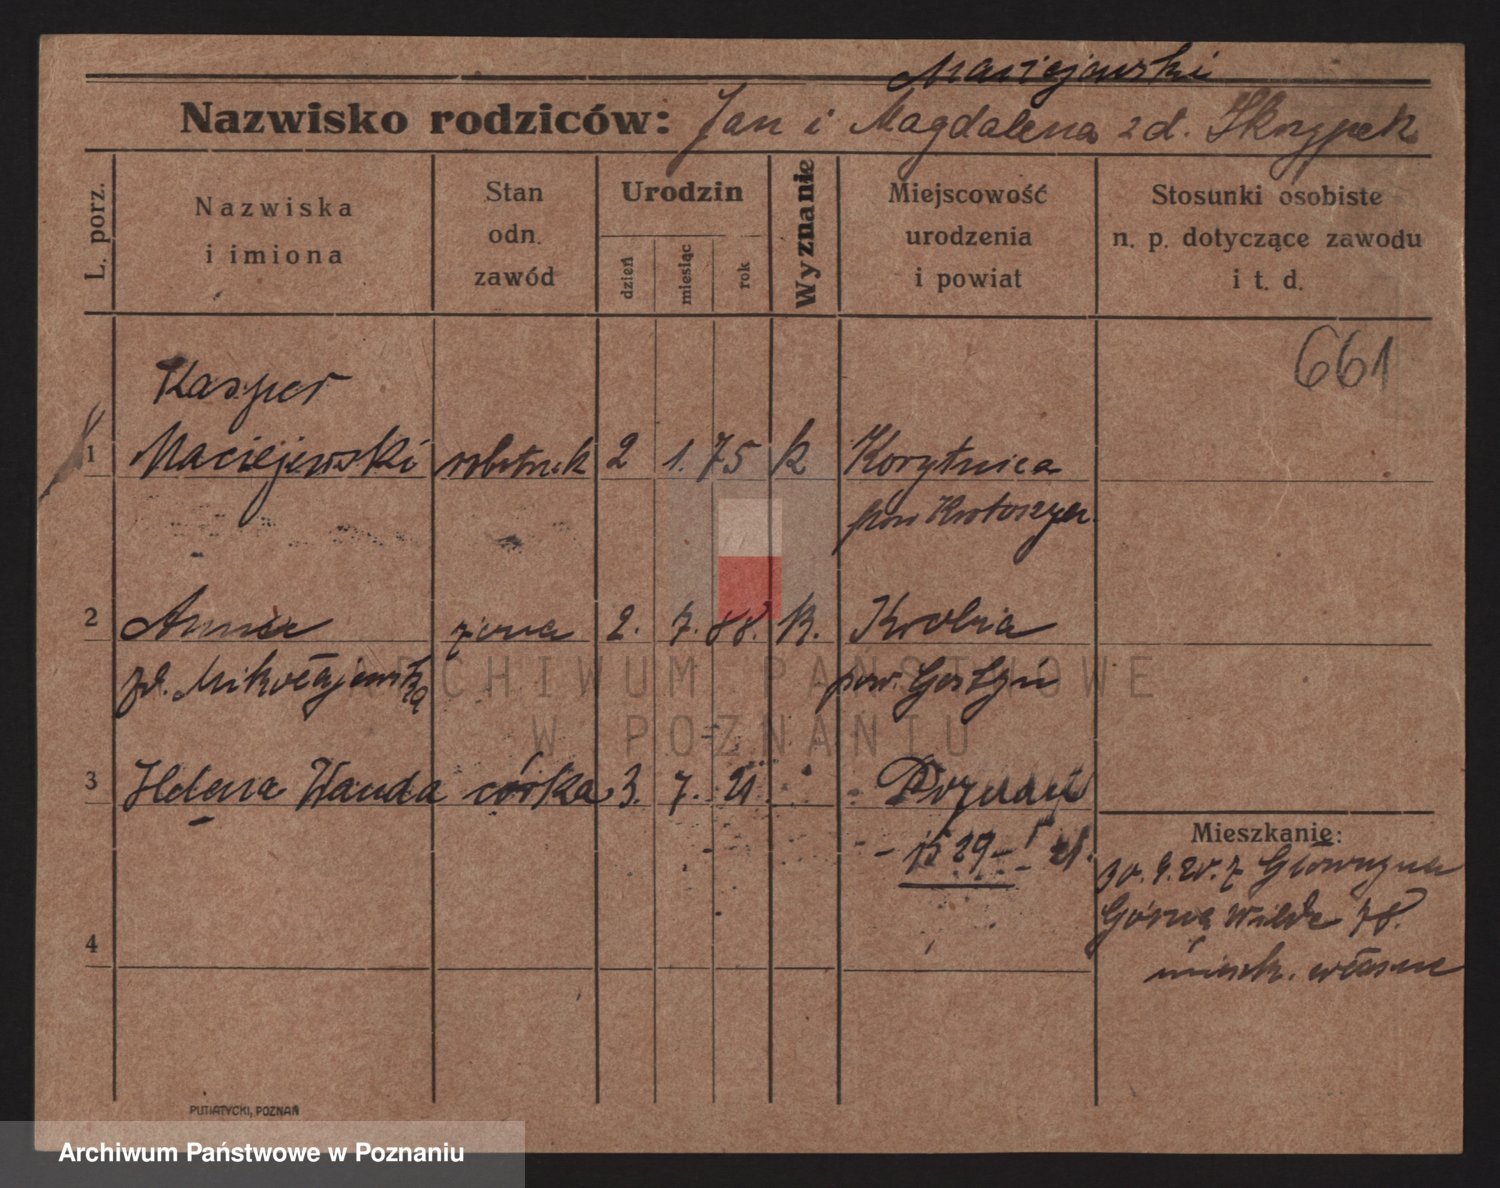 Maciejewski
Nazwisko rodziców: Jan i Magdalena zd. Skrzypek
L. porz.
Nazwiska
i imiona
Stan
odn.
zawód
Urodzin
dzień
miesiąc
rok
Wyznanie
Miejscowość
urodzenia
i powiat
Stosunki osobiste
n. p. dotyczące zawodu
i t. d.
661
Kasper
1 Maciejewski robotnik 2 1. 75 k Korytnica
pow Krotoszyn
2 Anna żona 2. 7. 88. k. Krobia
zd. Mikołajewska pow. Gostyń
3 Helena Wanda córka 3. 7. 21 Poznań
Mieszkanie:
30. 9. 20. z Główczyna
Górna Wilda 78.
4
mieszk. własne
PUTIATYCKI, POZNAŃ
ARCHIWUM PAŃSTWOWE
W POZNANIU
Archiwum Państwowe w Poznaniu